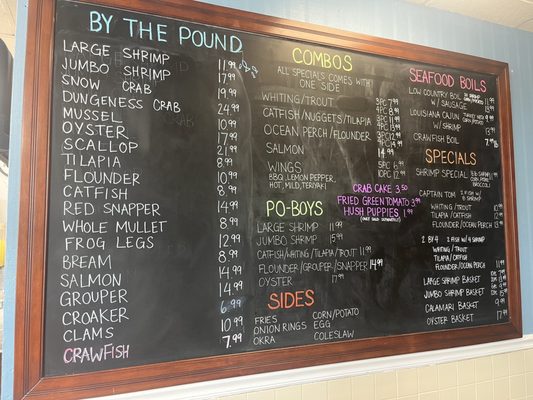 BY THE POUND
LARGE SHRIMP 11.99
JUMBO SHRIMP 17.99
SNOW CRAB 19.99
DUNGENESS CRAB 24.99
MUSSEL
OYSTER 10.99
SCALLOP 17.99
TILAPIA 21.99
FLOUNDER 8.99
CATFISH 10.99
RED SNAPPER 8.99
WHOLE MULLET 14.99
FROG LEGS 8.99
BREAM 12.99
SALMON 8.99
GROUPER 14.99
CROAKER 14.99
CLAMS 6.99
CRAWFISH 10.99
7.99
COMBOS
ALL SPECIALS COMES WITH
ONE SIDE
WHITING/TROUT 3PC 7.99
CATFISH/NUGGETS/TILAPIA
OCEAN PERCH/FLOUNDER
SALMON 14.99
WINGS 5PC
BBQ, LEMON PEPPER, 10PC 12.99
HOT, MILD, TERIYAKI
CRAB CAKE 3.50
FRIED GREEN TOMATO 3.99
HUSH PUPPIES 1.99
PO-BOYS
LARGE SHRIMP 11.99
JUMBO SHRIMP 15.99
CATFISH/WHITING/TILAPIA/TROUT 11.99
FLOUNDER/GROUPER/SNAPPER 14.99
OYSTER 17.99
SIDES
FRIES CORN/POTATO
ONION RINGS EGG
OKRA COLESLAW
SEAFOOD BOILS
LOW COUNTRY BOIL 11.99
W/ SAUSAGE 12.99
LOUISIANA CAJUN 11.99
W/ SHRIMP 13.99
CRAWFISH BOIL 7.99 lb
SPECIALS
SHRIMP SPECIAL
BROCCOLI
CAPTAIN TOM
WHITING/TROUT
TILAPIA/CATFISH 12.99
FLOUNDER/OCEAN PERCH 13.99
2 BY 4 2 FISH W/ 4 SHRIMP
WHITING/TROUT
TILAPIA/CATFISH
FLOUNDER/OCEAN PERCH 11.99
LARGE SHRIMP BASKET
JUMBO SHRIMP BASKET
CALAMARI BASKET
OYSTER BASKET 17.99